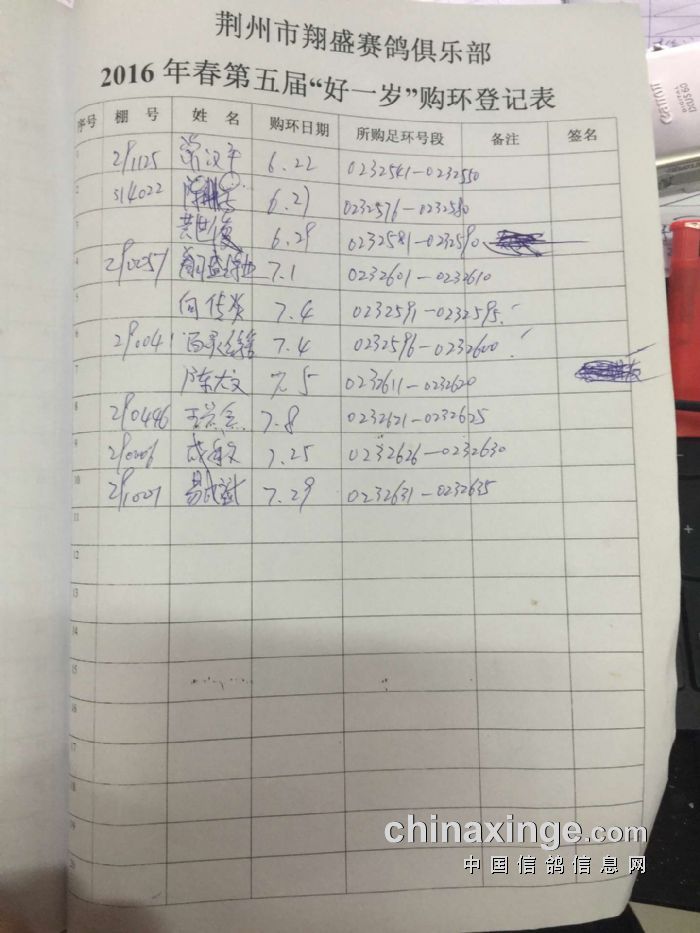 荆州市翔盛赛鸽俱乐部
2016 年春第五届“好一岁”购环登记表
序号 棚 号 姓 名 购环日期 所购足环号段 备注 签名
1 291125 常汉平 6.22 0232541-0232550
2 314022 6.27 0232576-0232580
3 6.29 0232581-0232590
4 290057 7.1 0232601-0232610
5 向传发 7.4 0232591-0232595
6 290041 7.4 0232596-0232600
7 陈大文 7.5 0232611-0232620
8 290446 7.8 0232621-0232625
9 290206 7.25 0232626-0232630
10 291007 易 7.29 0232631-0232635
11
12
13
14
15
16
17
18
19
20
chinaxinge.com
中国信鸽信息网